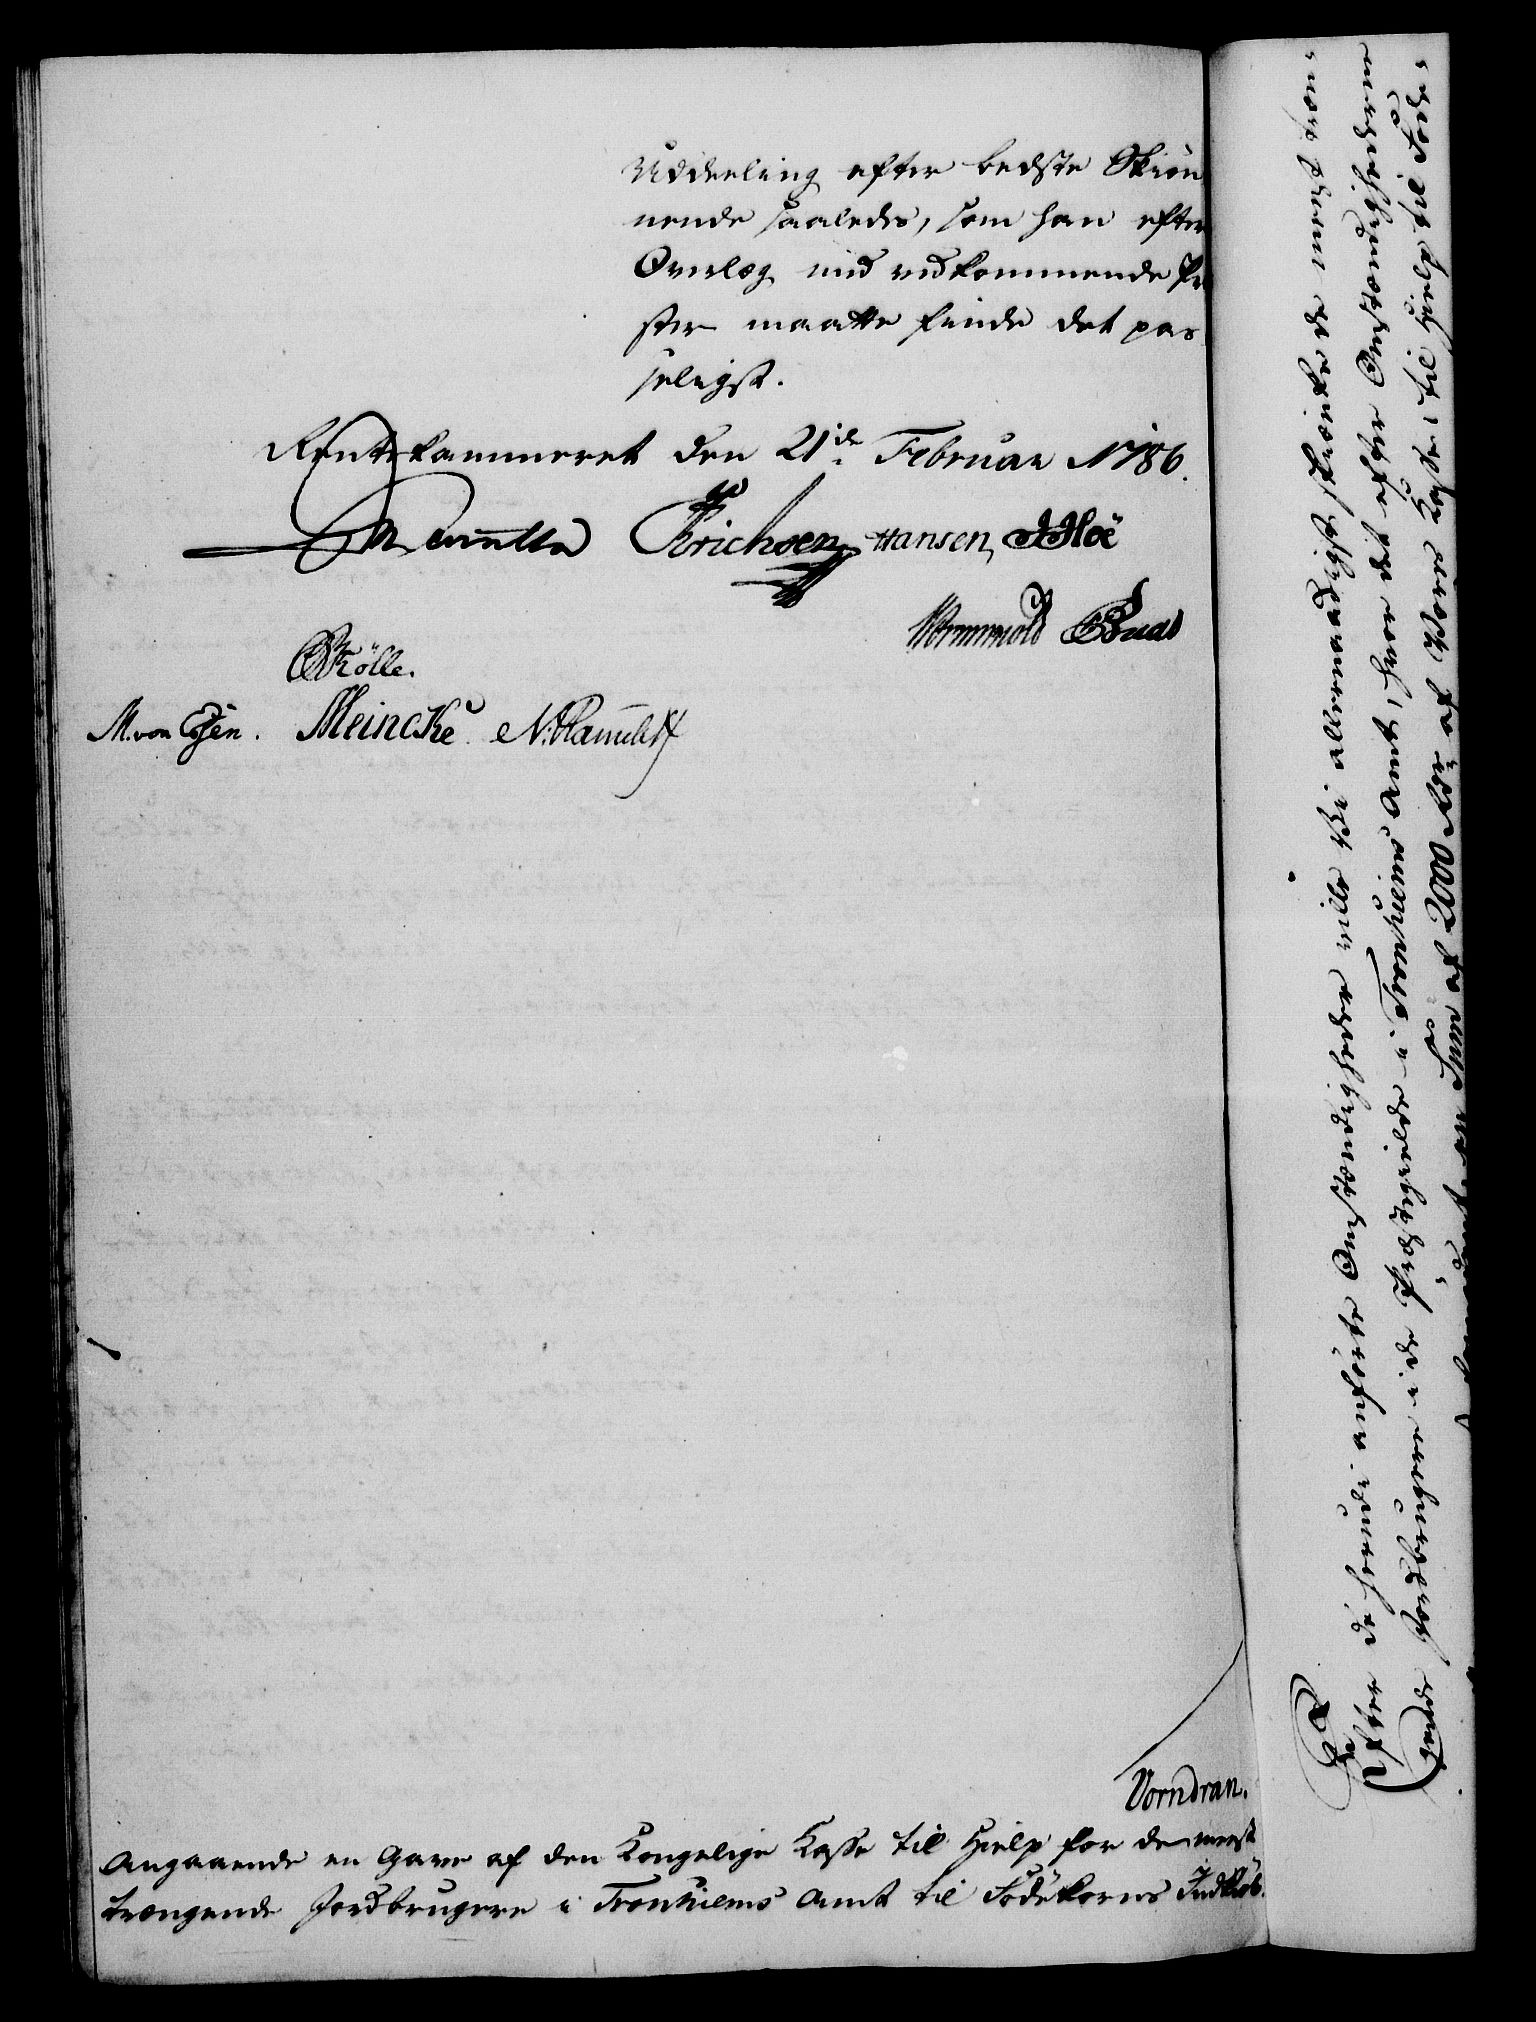 Uddeeling efter bedste Skiøn
nende saaledes, som han efter
Overlæg med vedkommende Præ
ster maatte finde det pas
seligst.
Rentekammeret den 21de Februar 1786.
Erichsen Hansen, JHoë
Wormskiold
Rölle.
M. von Essen. Meincke.
Vorndran.
Angaaende en Gave af den Kongelige Kasse til Hielp for de meest
trængende Jordbrugere i Tronhiems Amt til Födekorns Indkiöb.
Efter de herudi anförte Omstændigheder ville Vi allernaadigst skienke de meest træn-
gende Jordbrugere i de Præstegielde i Tronhiems Amt, hvor det efter Omstændighederne
en Sum af 2000 Rdr af Vores Kasse, til Hielp til Föde-